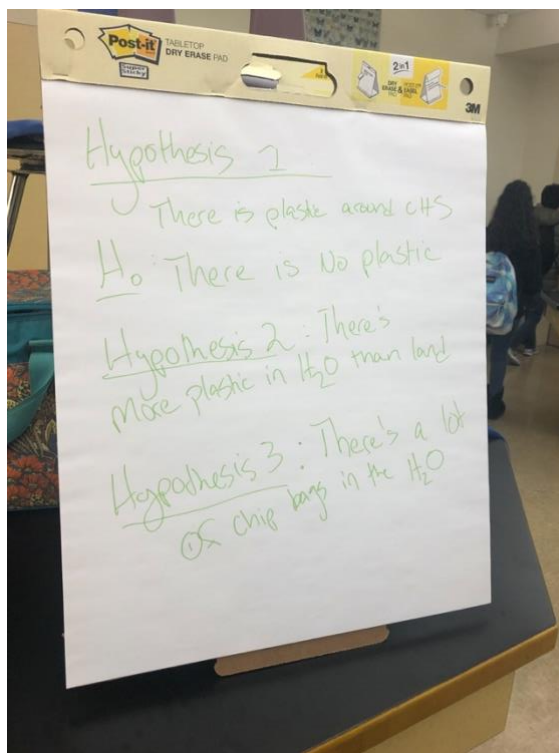 Post-it
TABLETOP
DRY ERASE PAD
Super
Sticky
2 in 1
DRY
ERASE &
3M
Hypothesis 1
There is plastic around CHS
H₀: There is No plastic
Hypothesis 2: There's
more plastic in H₂O than land
Hypothesis 3: There's a lot
of chip bags in the H₂O